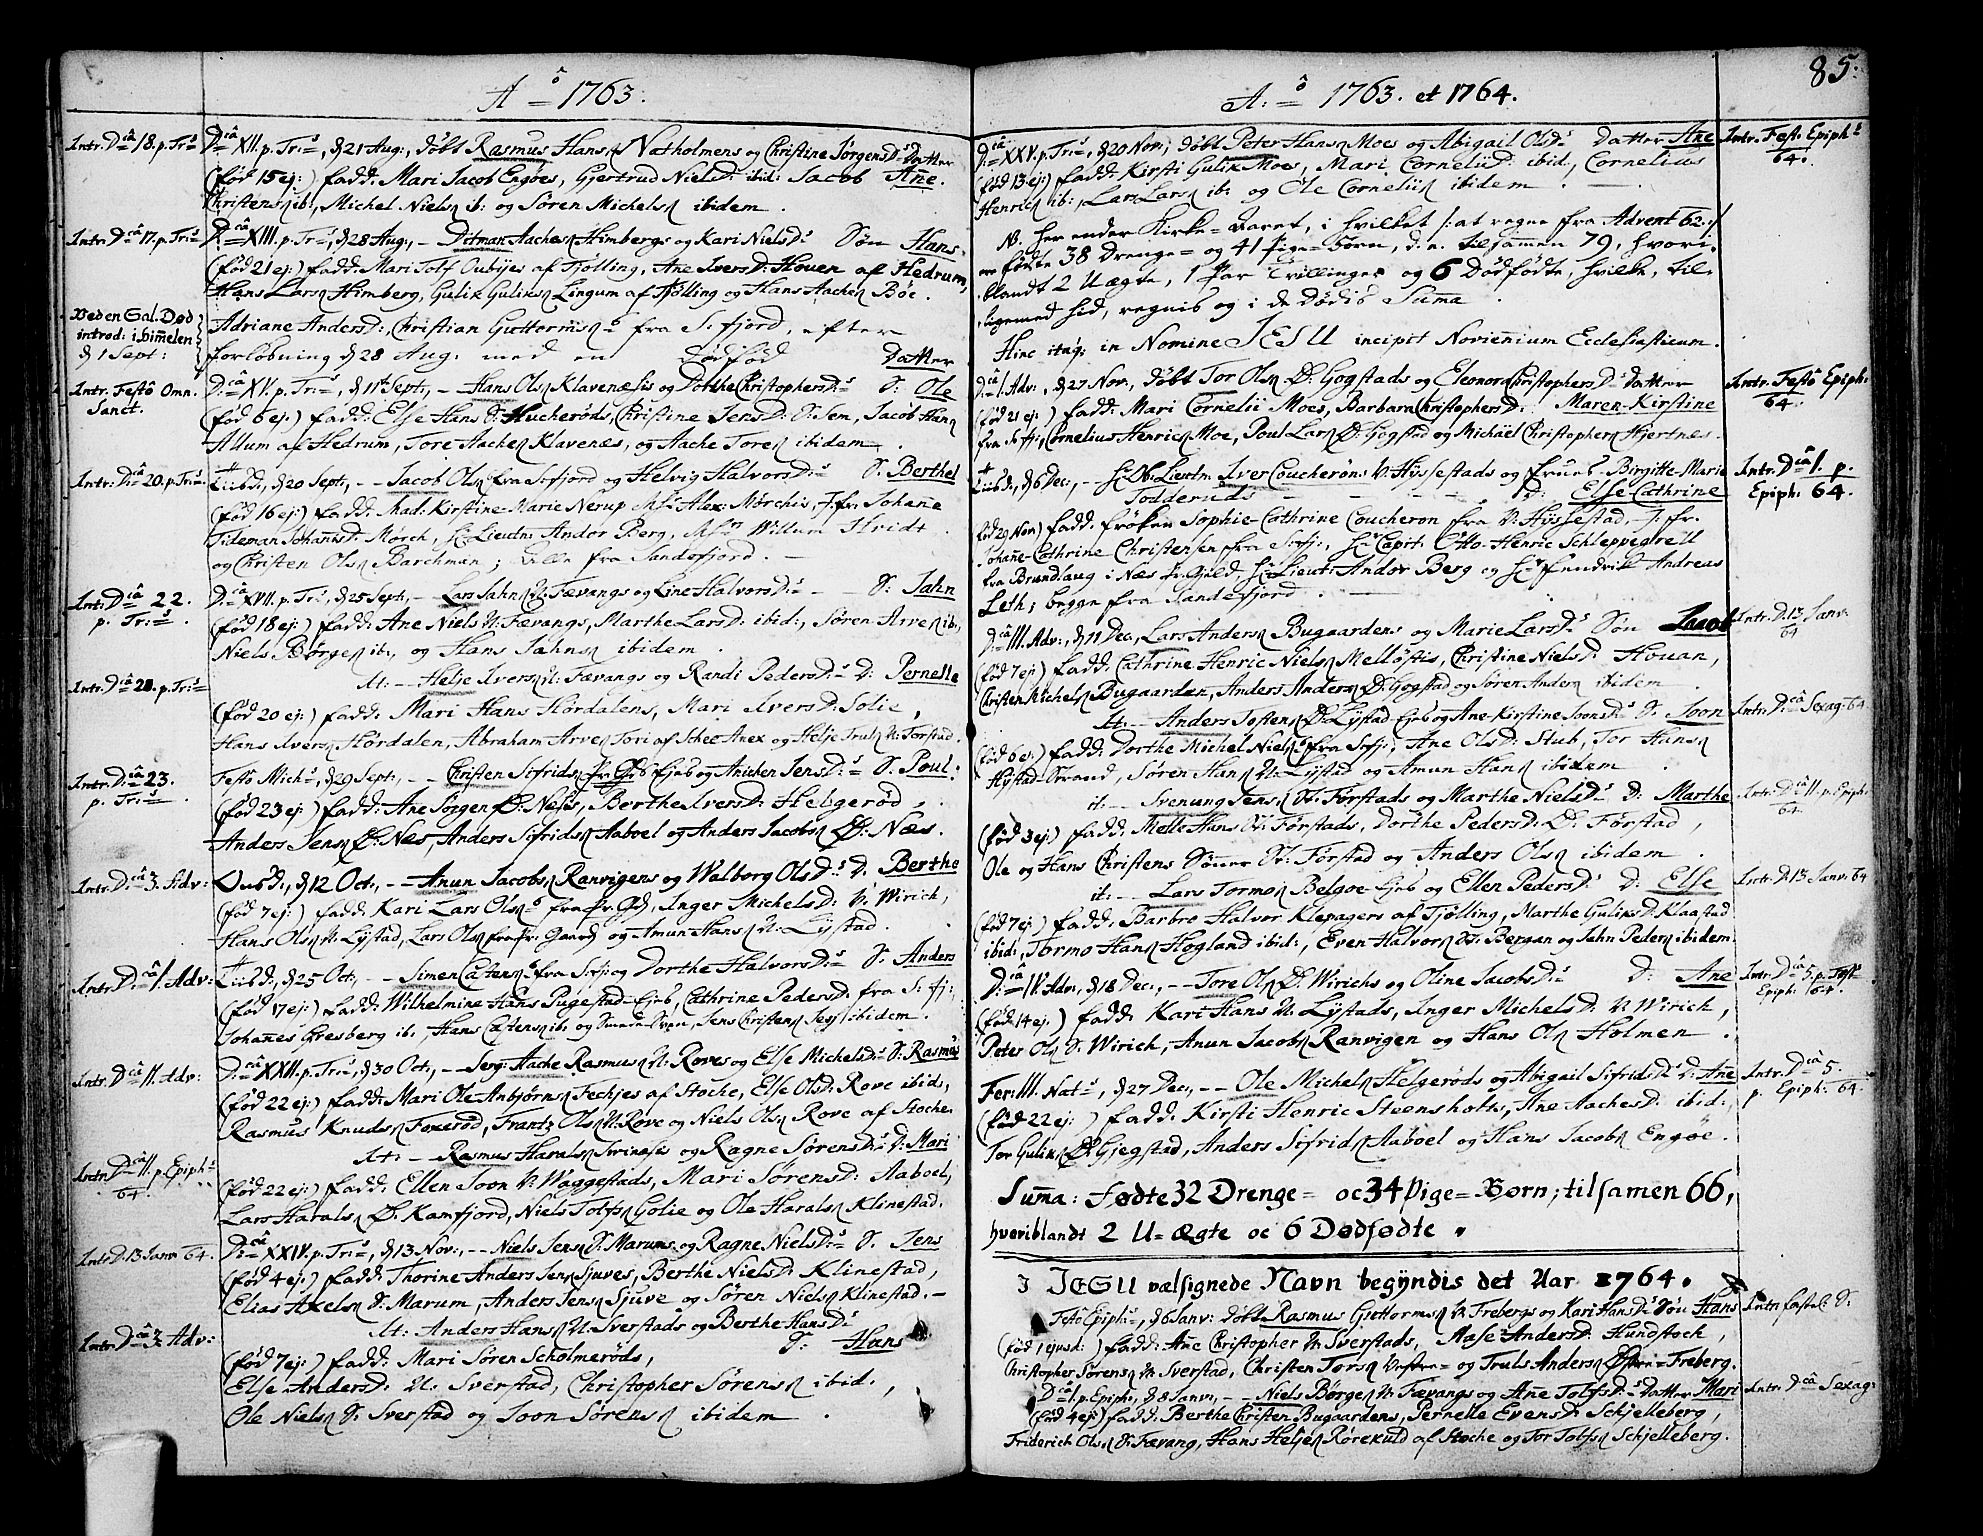 Aô 1763.
Intr. Dcâ 18. p. Trs
Dcâ XII. p. Trs, d 21 Aug:, døbt Rasmus Hansn Natholmens og Christine Jørgensds Datter
(fød 15 ej:) fadd: Mari Jacob Engøes, Gjertrud Nielsd: ibid: Jacob Añe.
Christensn ib:, Michel Nielsn ib: og Søren Michelsn ibidem.
Intr. Dcâ 17. p. Trs
Dcâ XIII. p. Trs, d 28 Aug:, - Ditman Aachesn Himbergs og Kari Nielsds Søn Hans.
(fød 21 ej:) fadd: Mari Tolf Oubyes af Tjølling, Ane Iversd: Houen af Hedrum,
Hans Larsn Himberg, Gulik Guliksn Lingum af Tjølling og Hans Aachesn Bøe.
Ved en Sal. Død
introd: i himelen
d 1 Sept:
Adriane Andersd:, Christian Guttormsns fra S. fjord, efter
forløbning d 28 Aug: med en dødfød Datter
Intr. Festô Omn.
Sanct.
Dcâ XV. p. Trs, d 11te Sept:, - Hans Olsn Klavenæsis og Dorthe Christophersds S: Ole
(fød 6 ej:) fadd: Else Hans S. Hucherøds, Christine Jensd: S. Jen, Jacob Hansn
Allum af Hedrum, Tore Aachesn Klavenæs, og Aache Toresn ibidem.
Intr: Dcâ 20. p. Trs
Tiisd:, d 20 Sept:, - - Jacob Olsn fra S. fjord og Helvig Halvorsds S. Berthel
(fød 16 ej:) fadd: Mad: Kirstine-Marie Nerup Msr Alex: Mørchis, J.fr: Johañe
Tideman Johañesd: Mørch, Hr Lieutn: Andor Berg, Msr Willum Hvidt
og Christen Olsn Barchman; alle fra Sandefjord.
Intr: Dcâ 22.
p. Trs
Dcâ XVII. p. Trs, d 25 Sept:, - Lars Jahnsn N. Fævangs og Line Halvorsds - S. Jahn
(fød 18 ej:) fadd: Ane Niels N. Fævangs, Marthe Larsd: ibid:, Søren Arvesn ib:,
Niels Børgesn ib:, og Hans Jahnsn ibidem.
Intr. Dcâ 20. p. Trs
It: - Helje Iversn N. Fævangs og Randi Pedersds D: Pernelle
(fød 20 ej:) fadd: Mari Hans Hørdalens, Mari Iversd: Solie,
Hans Iversn Hørdalen, Abraham Arvesn Tori af Schee Anex og Helje Trulsn N. Torstad.
Intr: Dcâ 23.
p. Trs
Festô Michs, d 29 Sept:, - - Christen Sifridsn Pr. Gds Ejeb og Anichen Jensds S. Poul.
(fød 23 ej:) fadd: Ane Jørgen Ø: Nesis, Berthe Iversd: Helgerød,
Anders Jensn Ø: Nes, Anders Sifridsn Aaboel og Anders Jacobsn Ø: Næs.
Intr: Dcâ 3. Adv:
Onsd:, d 12 Oct:, - - Anun Jacobsn Ranvigens og Walborg Olsds D. Berthe
(fød 7 ej:) fadd: Kari Lars Olsns fra Pr. Gd, Inger Michelsd: V. Wirich,
Hans Olsn N. Lystad, Lars Olsn fra Pr. Gaard og Amun Hansn N. Lystad.
Intr: Dcâ 1. Adv:
Tiisd:, d 25 Oct:, - - Simen Castensns fra S. fj: og Dorthe Halvorsds S. Anders
(fød 17 ej:) fadd: Wilhelmine Hans Pugestad-Ejeb, Cathrine Pedersd: fra S. fj:,
Johañes Gresberg ib:, Hans Castensn ib: og Svend, Jens Christensn ibidem.
Intr: Dcâ 11. Adv:
Dcâ XXII. p. Trs, d 30 Oct:, - - Serg: Aache Rasmusn N. Roves og Else Michelsds S. Rasmus
(fød 22 ej:) fadd: Mari Ole Anbjørnsn Fechjes af Stoche, Else Olsd: Rove ibid:,
Rasmus Knudsn Foxerød, Frantz Olsn N. Rove og Niels Olsn Rove af Stoche.
Intr: Dcâ 11. p. Epiphs
64.
It: - Rasmus Haralsn Tvinæsis og Ragne Sørensds D: Mari
(fød 22 ej:) fadd: Ellen Joon N. Waggestads, Mari Sørensd: Aaboel,
Lars Haralsn Ø: Kamfjord, Niels Tolfsn Golie og Ole Haralsn Klinestad.
Intr D. 13 Janv 64.
Dcâ XXIV. p. Trs, d 13 Nov:, - - Niels Jensn S. Marums og Ragne Nielsds S. Jens
(fød 4 ej:) fadd: Thorine Anders Jensn Sjuves, Berthe Nielsd: Klinestad,
Elias Axelsn S. Marum, Anders Jensn Sjuve og Søren Nielsn Klinestad. -
Intr: Dcâ 3. Adv:
It: - Anders Hansn N. Sverstads og Berthe Hansds
(fød 7 ej:) fadd: Mari Søren Scholmerøds, S. Hans
Else Andersd: N. Sverstad, Christopher Sørensn ibid.,
Ole Nielsn S. Sverstad og Joon Sørensn ibidem.
A:ô 1763. et 1764. 85.
Dcâ XXV. p. Trs, d 20 Nov:, døbt Peter Hansn Moes og Abigail Olsds Datter Añe
Intr. Fest: Epiphs
64.
(fød 13 ej:) fadd: Kirsti Gulik Moes, Mari Cornelisd: ibid:, Cornelius
Henricsn ib:, Lars Larsn ib: og Ole Corneliisn ibidem.
N. her ender Kirke-Aaret, i hvilket /: at regne fra Advent 62:/
ere fødte 38 Drenge- og 41 Pige-Børn, d. e. tilsammen 79, hvori-
blandt 2 Uægte, 1 Par Tvillinger og 6 Dødfødte, hvilke, til-
ligemed hid, regnis og i de dødis Suma.
Hinc itaq: in Nomine JESU incipit Novienium Ecclesiasticum.
Dcâ 1. Adv:, d 27 Nov:, døbt Tor Olsn Ø: Gogstads og Eleonora Christophersds Datter
Intr. Festô Epiph:
64.
(fød 21 ej:) fadd: Mari Cornelii Moes, Barbara Christophersd: Maren-Kirstine
fra S. fj:, Cornelius Henricsn Moe, Poul Larsn Ø: Gogstad og Michäel Christophersn Hjertnæs.
Tiisd:, d 6 Dec:, - - Hr Ob: Lieutn: Iver Coucherons V: Hyssestads og Frues Birgitte-Marie
Intr: Dcâ 1. p.
Epiph: 64.
Todderuds - - - - - D: Else Cathrine
(fød 29 Nov:) fadd: Frøken Sophie-Cathrine Coucheron fra V: Hyssestad, J. fr.
Johañe-Cathrine Christensen fra S. fj:, Hr Capit: Otto-Henric Schleppegrell
fra Brundlaug i Næs Pr. Gjeld, Hr Lieut: Andor Berg og Hr Fendrich Andreas
Leth; begge fra Sandefjord.
Dcâ III. Adv:, d 11 Dec:, Lars Andersn Bugaardens og Marie Larsds Søn Jacob
Intr: D. 13 Janv:
64
(fød 7 ej:) fadd: Cathrine Henric Nielsn Melløstis, Christine Nielsd: Houan,
Christen Michelsn Bugaarden, Anders Andersn Ø: Gogstad og Søren Andersn ibidem.
It: - Anders Jostensn Ø: Lystad-Ejeb og Ane-Kirstine Joonsds S. Joon
Intr: Dcâ Sexag: 64.
(fød 6 ej:) fadd: Dorthe Michel Nielsns fra S. fj:, Ane Olsd: Stub, Tor Hansn
Hystad-Strand, Søren Hansn N. Lystad og Amun Hansn ibidem.
it: - - Svenung Jensn N. Førstads og Marthe Nielsds D: Marthe
Intr: Dcâ 11. p. Epiph:
64.
(fød 3 ej:) fadd: Melle Hans N. Førstads, Dorthe Pedersd: Ø: Førstad,
Ole og Hans Christens Sønner N. Førstad og Anders Olsn ibidem.
it: - - Lars Tormosn Belgoe-Ejeb og Ellen Pedersds D: Else
Intr: D. 13 Janv: 64
(fød 7 ej:) fadd: Barbro Halvor Klepagers af Tjølling, Marthe Guliksd: Klaastad
ibid:, Tormo Hansn Hogland ibid:, Even Halvorsn N. Bergan og Jahn Pedersn ibidem
Dcâ IV. Adv:, d 18 Dec:, - - Tore Olsn Ø: Wirichs og Oline Jacobsds D: Ane
Intr: Dcâ 5. p. Fests
Epiph: 64.
(fød 14 ej:) fadd: Kari Hans N. Lystads, Inger Michelsd: V. Wirich,
Peter Olsn S. Wirich, Anun Jacobsn Ranvigen og Hans Olsn Holmen.
Fer: III. Nats, d 27 Dec:, - - Ole Michelsn Helgerøds og Abigail Sifridsds D: Añe
Intr: Dcâ 5.
p. Epiph: 64.
(fød 22 ej:) fadd: Kirsti Henric Steensholts, Ane Aachesd: ibid:,
Tor Guliksn Ø: Gjegstad, Anders Sifridsn Aaboel og Hans Jacobsn Engøe.
Suma: Fødte 32 Drenge- oc 34 Pige-Børn; tilsamen 66,
hvoriblandt 2 U-ægte oc 6 Dødfødte.
I JESU velsignede Navn begyndis det Aar 1764.
Festô Epiphs, d 6 Janv: døbt Rasmus Guttormsn N. Frebergs og Kari Hansds Søn Hans
Intr: fastel: S.
(fød 1 ejusd:) fadd: Añe Christopher N. Sverstads, Aase Andersd: Hundstoch,
Christopher Sørensn N. Sverstad, Christen Torsn Vestre- og Truls Andersn Østre-Freberg.
Dcâ 1. p. Epiph:, d 8 Janv:, - - Niels Børgesn N. Fævangs og Ane Tolfsds Datter Mari
Intr: Dcâ Sexag:
(fød 4 ej:) fadd: Berthe Christen Bugaardens, Pernelle Evensd: Schjelleberg,
Friderich Olsn S. Fævang, Hans Heljesn Rørekuld af Stoche og Tor Tolfsn Schjelleberg.